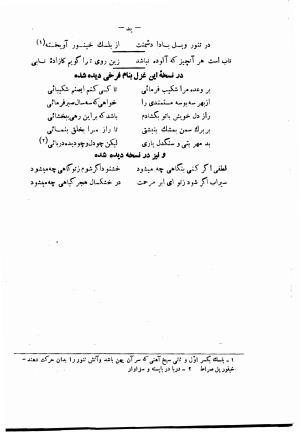 - ید -
در تنور ویل بادا دشمنت از بلسك خینور آویخته (۱)
تاب است هر آنچیز که آلوده نباشد زین روی : را گویم کازاده نابی
در نسخهٔ این غزل بنام فرخی دیده شده
بر وعده مرا شکیب فرمائی تا کی کنم ایصنم شکیبائی
از بهر سه بوسه مستمندی را خواهی که سه سال صبر فرمائی
راز دل خویش باتو بگشادم باشد که براین رهی ببخشائی
بر برگ سمن بمشك بنبشتی تا راز مرا بخلق بنمائی
بد مهر بتی و سنگدل یاری لیکن چو دل و چو دیده دربائی (۲)
و نیز در نسخه دیده شده
قطفی اگر کنی بنگاهی چه میشود خشنود اگر شوم زتو گاهی چه میشود
سیراب اگر شود زتو ای ابر مرحمت در خشکسال هجر گیاهی چه میشود
۱ - بلسك بکسر اول و ثانی سیخ آهنی که سر آن پهن باشد و آتش تنور را بدان حرکت دهند -
خینور پل صراط ۲ - دربا در بایسته و سزاوار